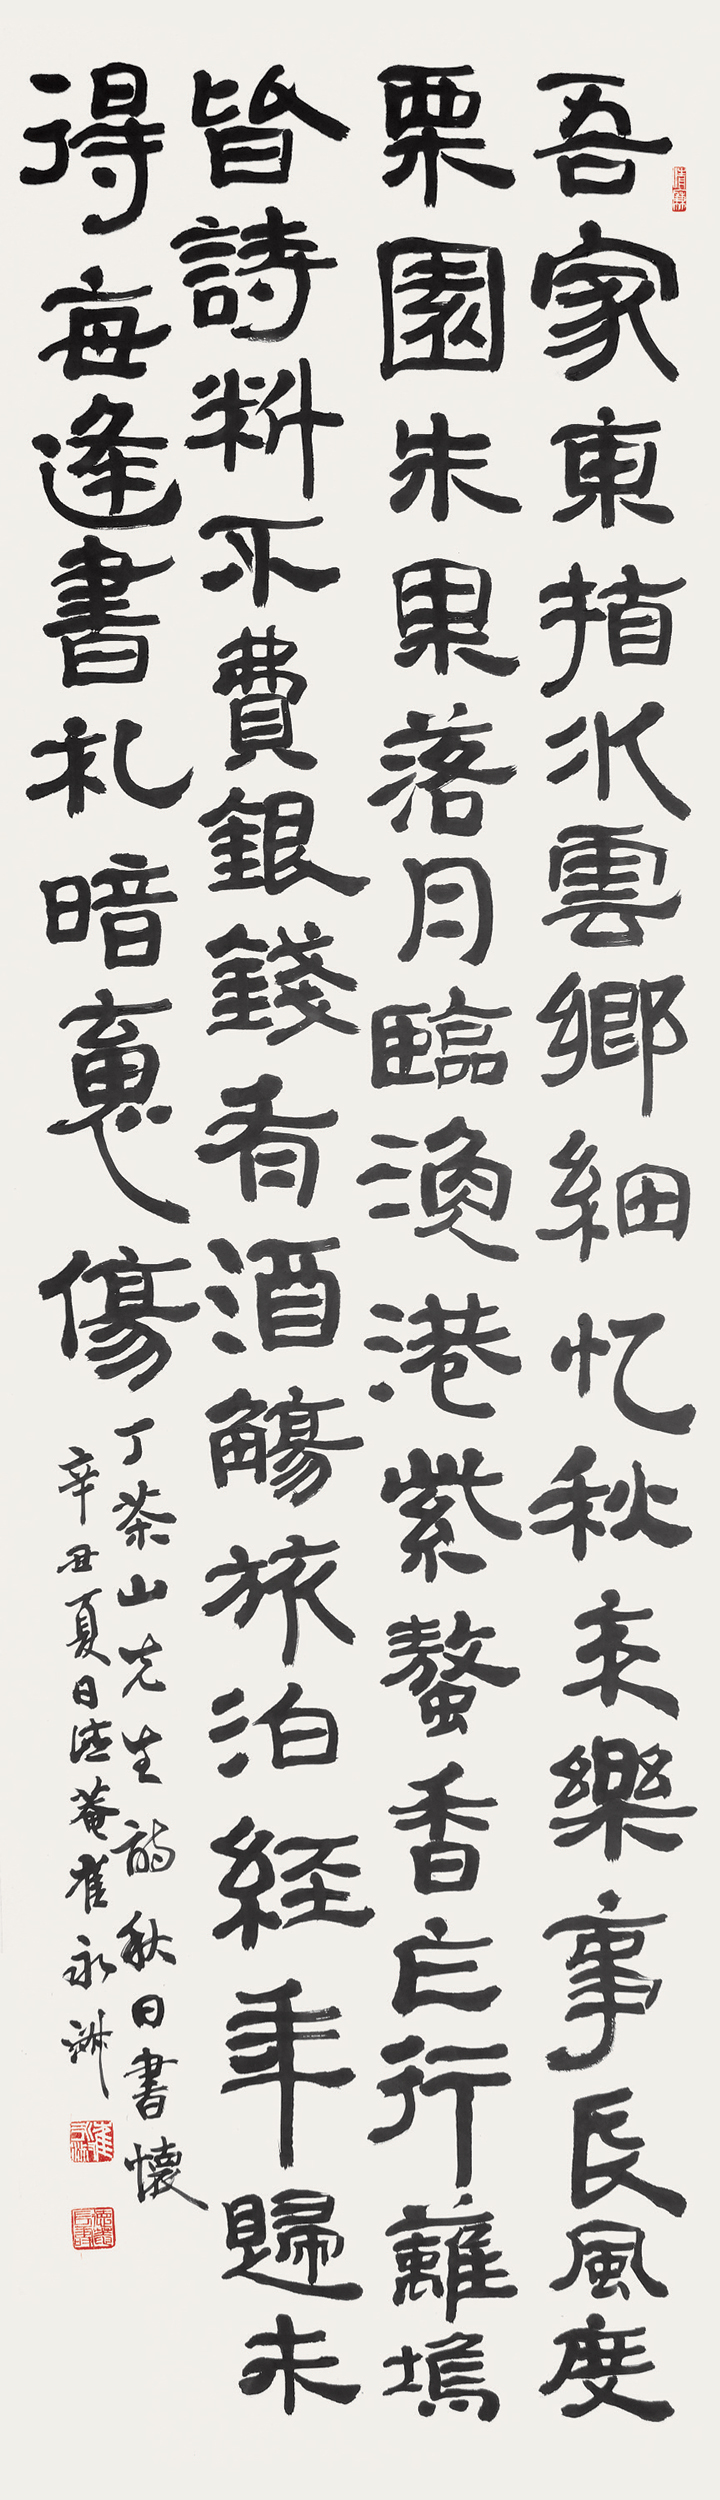 吾家東指水雲鄉細忆秋来樂事長風度
栗園朱果落月臨漁港紫螯香乍行蘺塢
皆詩料不費銀錢有酒觴旅泊経年歸未
得每逢書札暗魂傷
丁茶山先生詩秋日書懷
辛丑夏日菴崔永